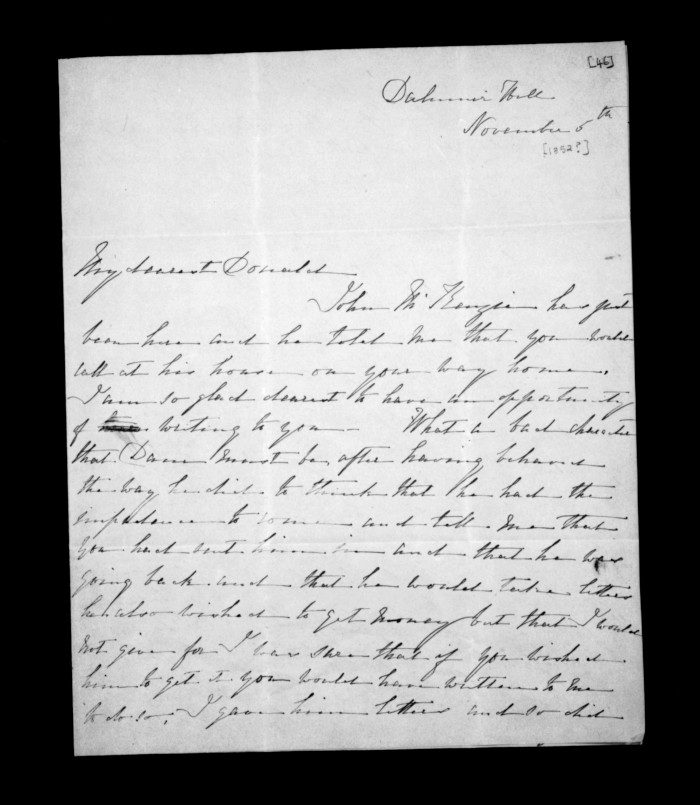 [46]
Dalmuir Hill
November 5th
[1852?]
My dearest Donald
John McKenzie has just
been here and he told me that you would
call at his house on your way home.
I am so glad dearest to have an opportunity
of writing to you – What a bad character
that Dam must be, after having behaved
the way he did. to think that he had the
impudence to come and tell me that
you had sent him in and that he was
going back and that he would take letters
he also wished to get money but that I would
not give for I was sure that if you wished
him to get it you would have written to me
to do so; I gave him letters and so did